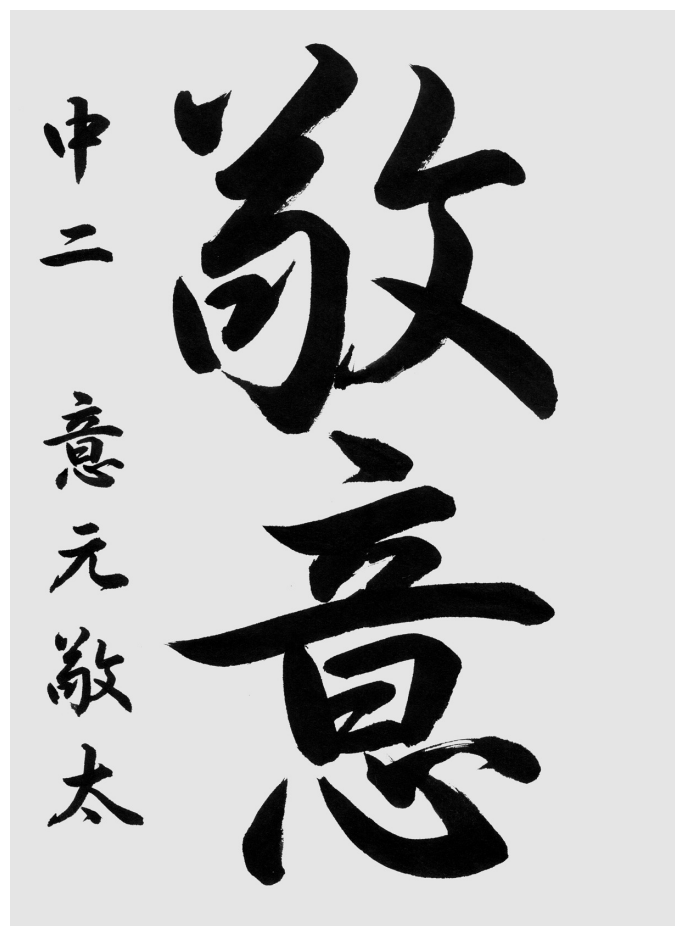 敬意
中二 意元敬太